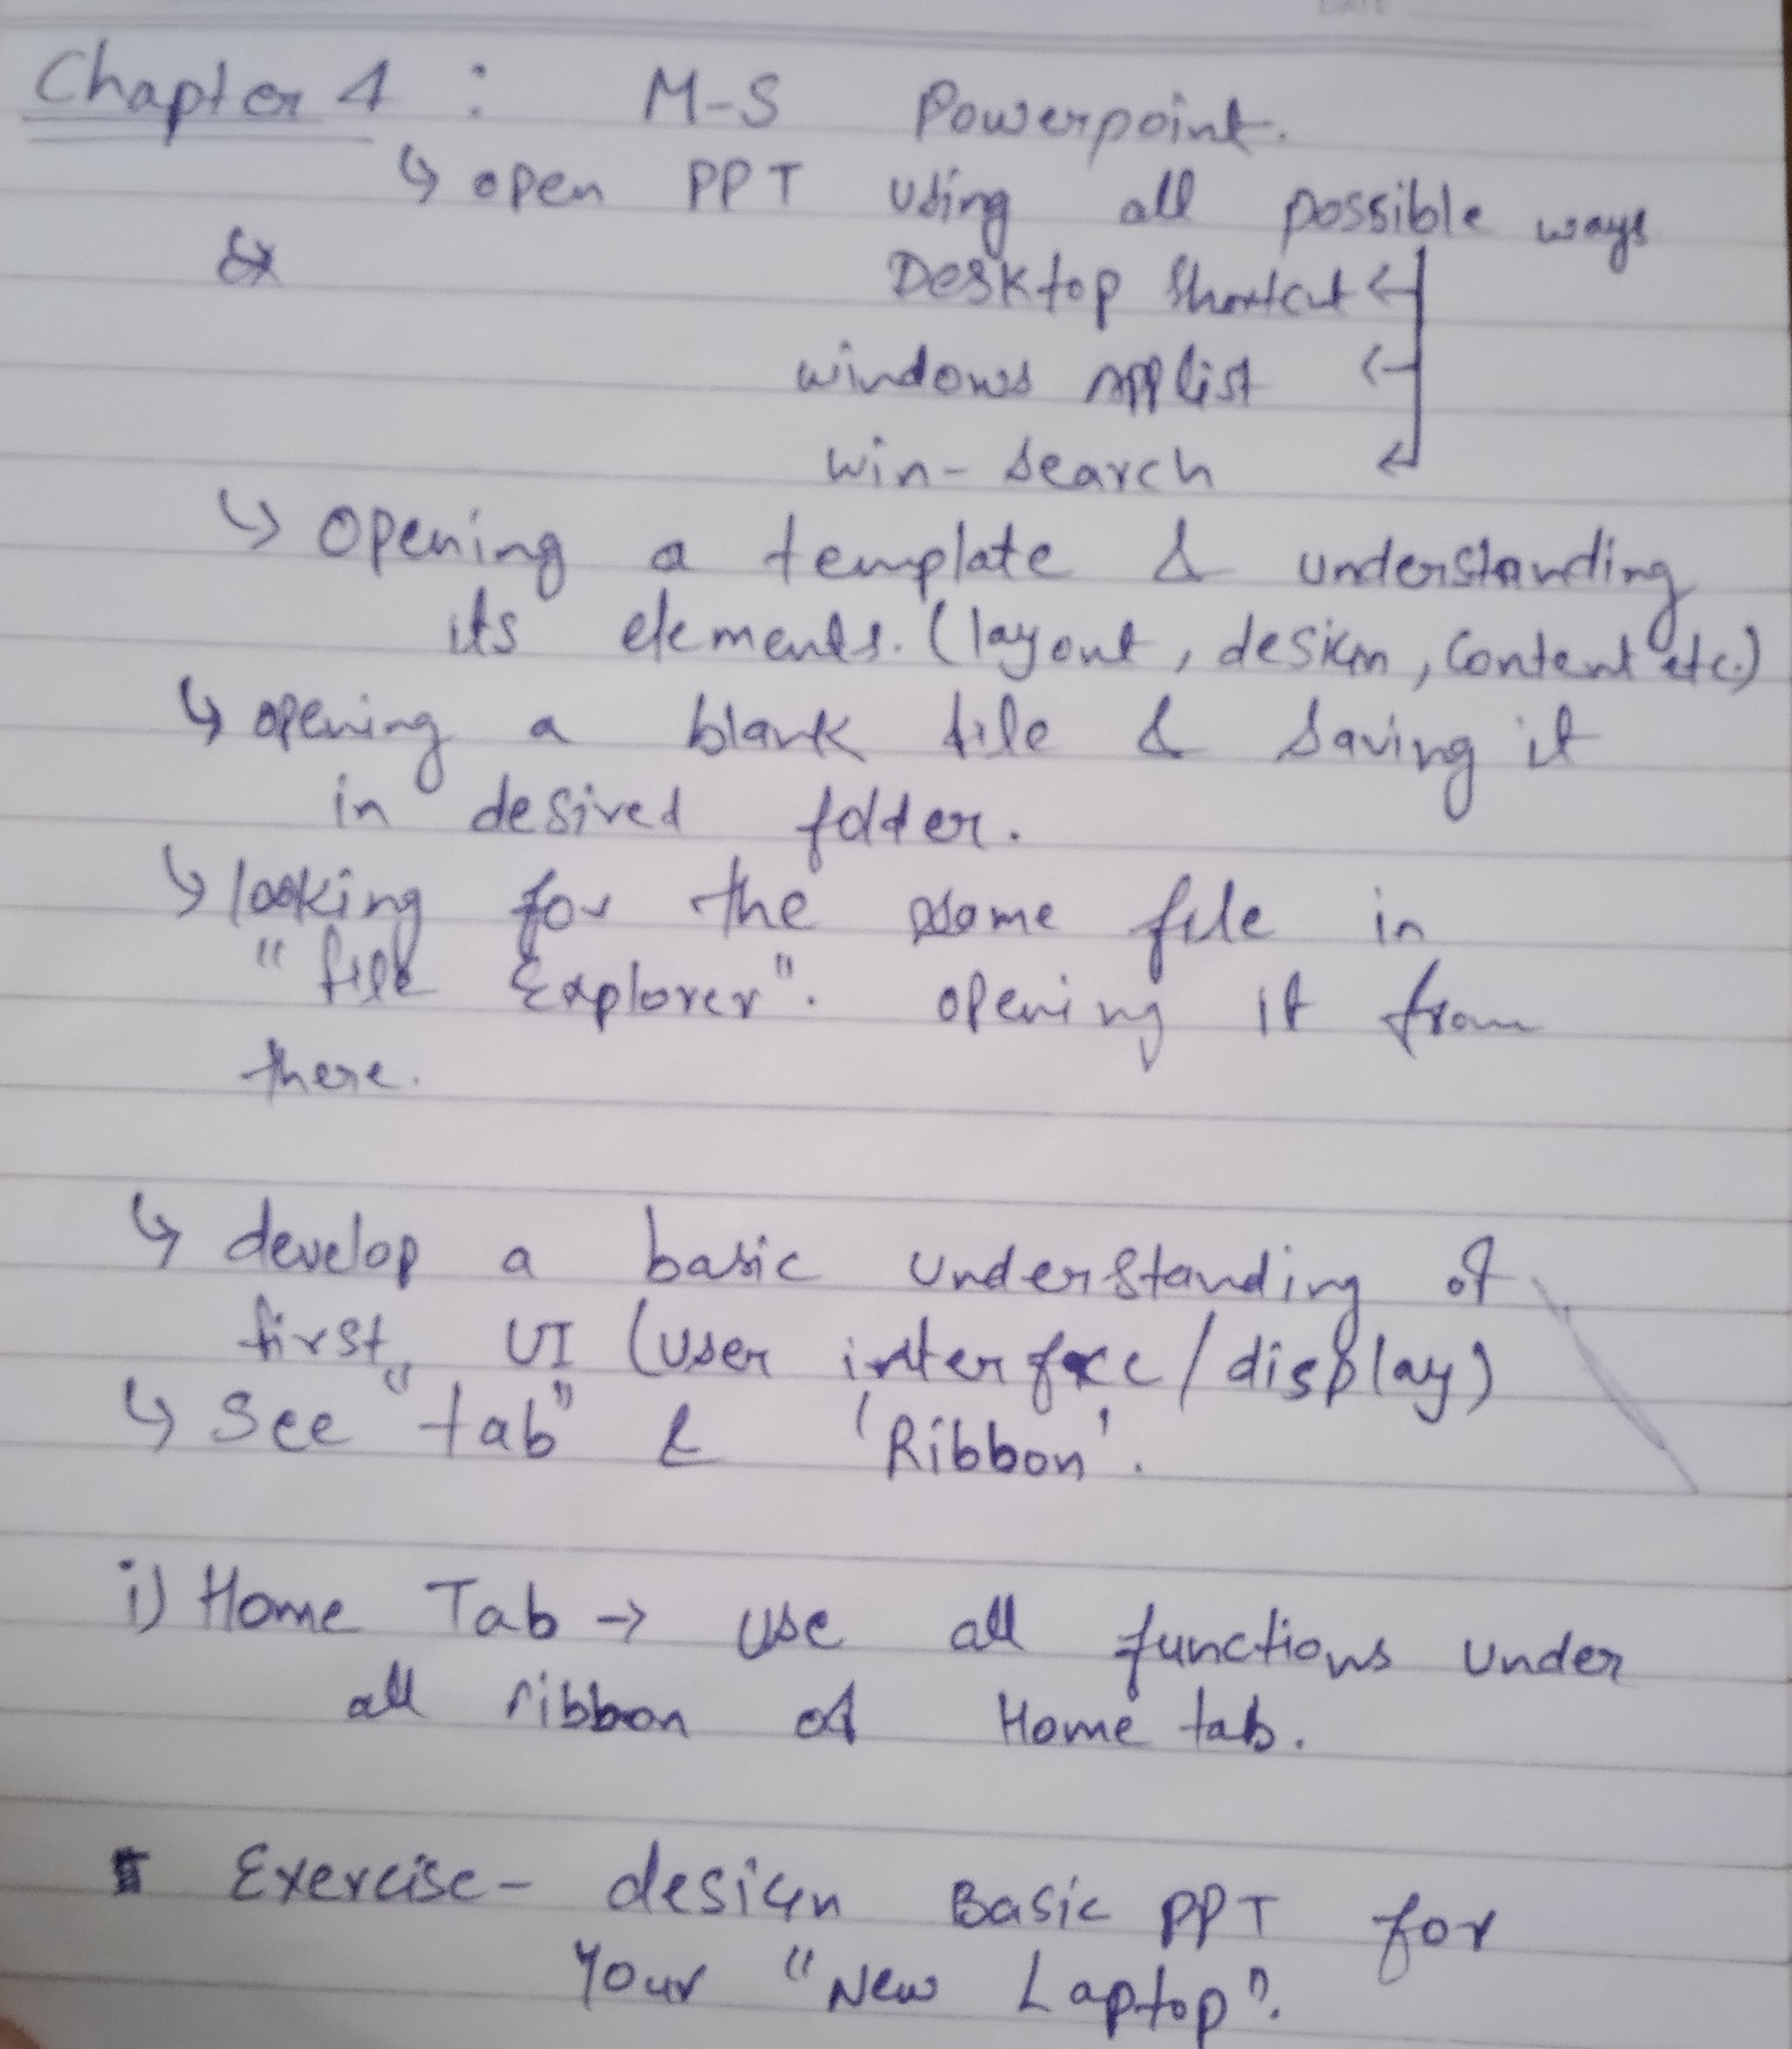 DATE
Chapter 4 : M-S Powerpoint.
↳ open PPT using all possible ways
Desktop Shortcut ←
windows App list ←
win-search ←
↳ opening a template & understanding
its elements. (layout, design, Content etc.)
↳ opening a blank file & saving it
in desired folder.
↳ looking for the same file in
"file Explorer". opening it from
there.
↳ develop a basic understanding of
first UI (user interface/display)
↳ See "tab" & 'Ribbon'.
i) Home Tab → use all functions under
all ribbon of Home tab.
Exercise - design Basic PPT for
Your "New Laptop".